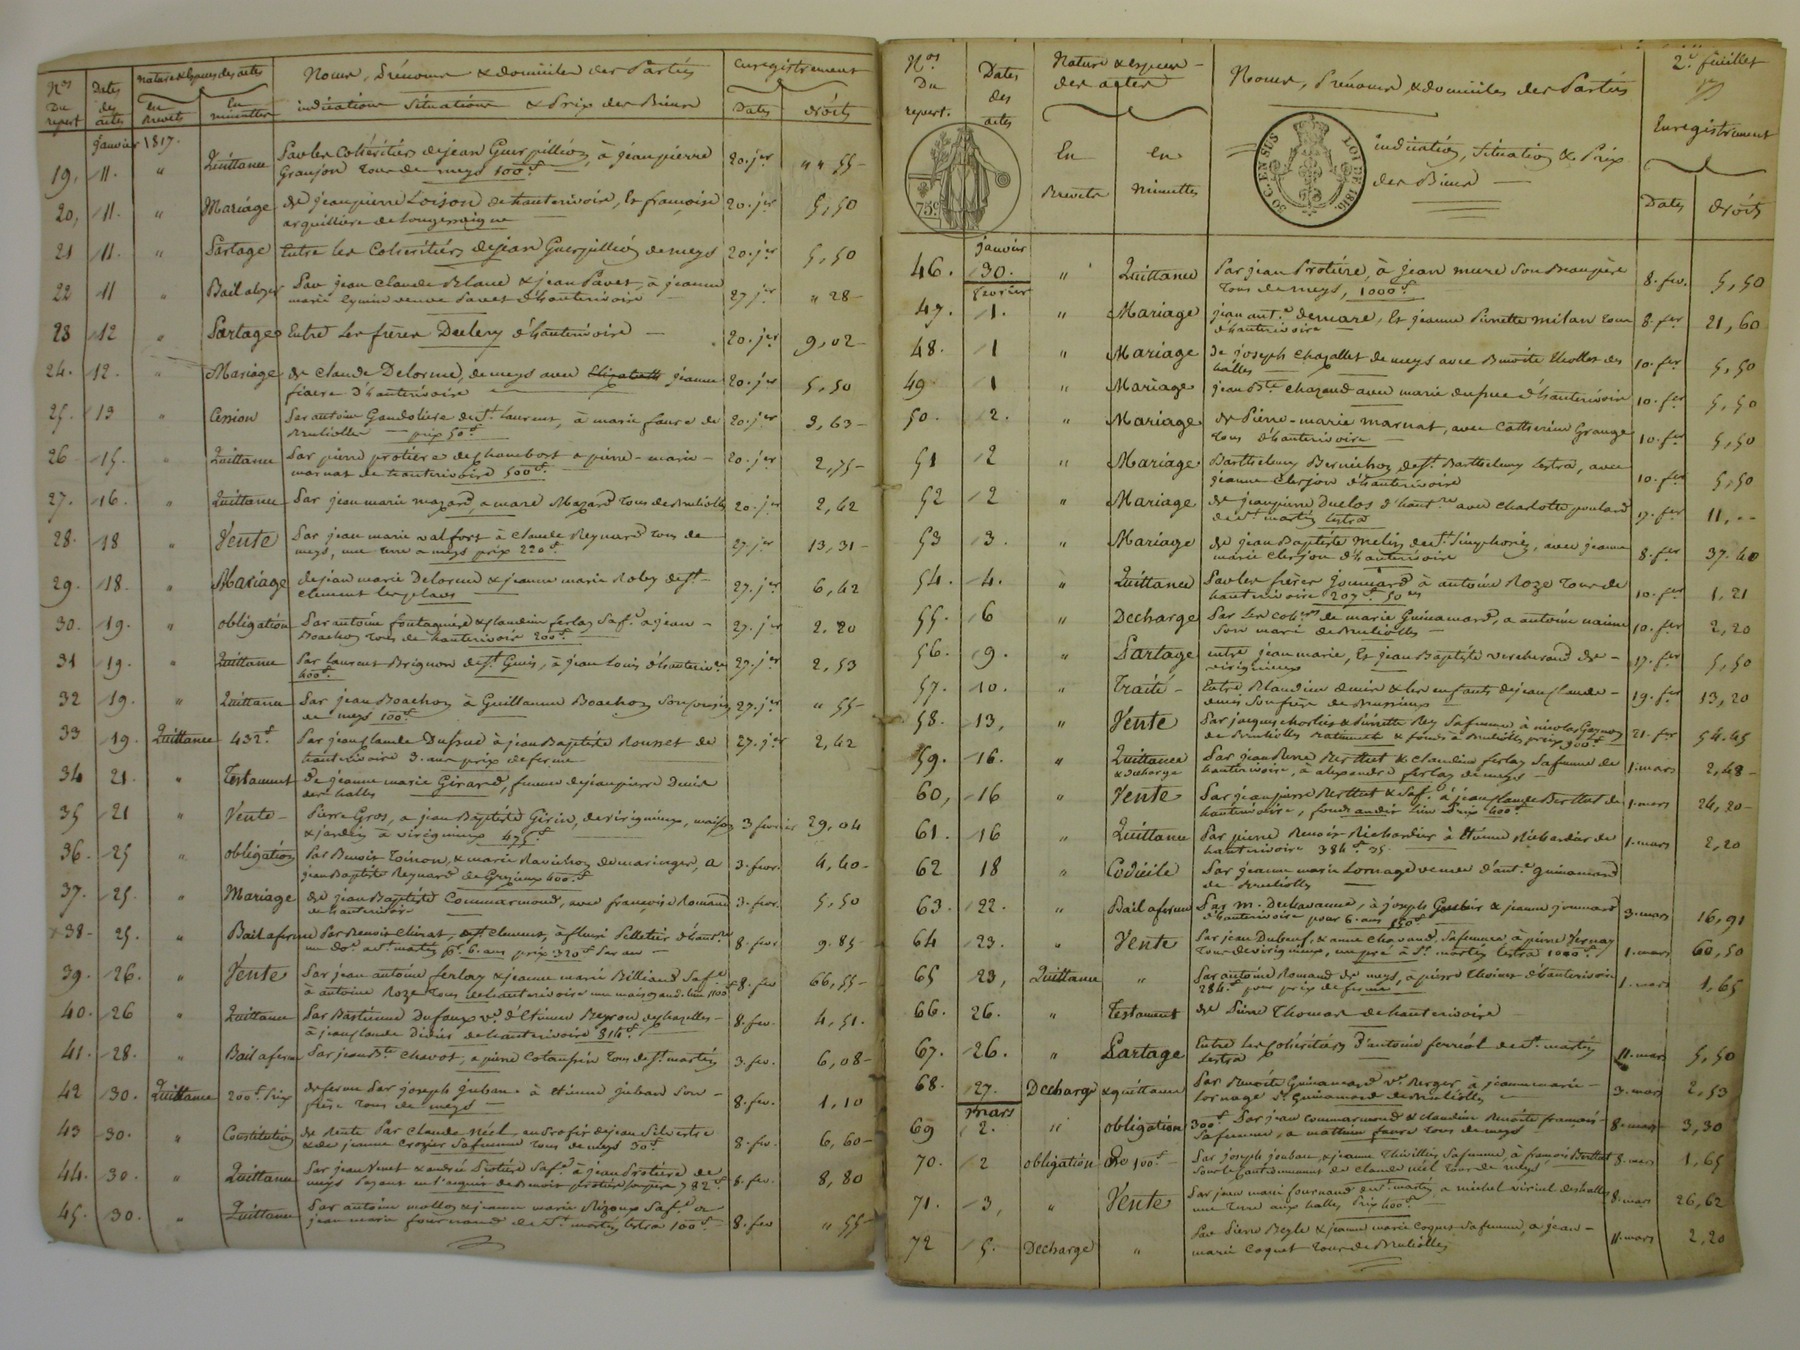 Nos Du repert
Dates des actes
Nature & Espece des actes
En Brevets
En minuttes
Noms, Prénoms & domiciles des Parties
indication Situation & Prix des Biens
Enregistrement
Dates
droits
janvier 1817.
19, 11. " Quittance Par les Cohéritiers de jean Guerpillion, à jean pierre 20. jer " " 55-
Granjon tous de meys 100f
20, 11. " Mariage de jean pierre Loison de hauterivoire, Et françoise 20. jer 5,50
arquilliere de Longessaigne
21 11. " Partage Entre les Coheritiers de jean Guerpillion de meys 20. jer 5,50
22 11 " Bail aloyer Par jean Claude Blanc & jean Pavet, à jeanne 27 jer " 28-
marie veuve Pavet d'hauterivoire
23 12 " Partage Entre les freres Decleny d'hauterivoire 20. jer 9,02-
24. 12. " Mariage de Claude Delorme, de meys avec Elizabeth jeanne 20. jer 5,50
fiaere d'hauterivoire
25. 13 " Cession Par antoine Gaudoliere de St Laurent, à marie faure de 20. jer 3,63-
Brulliolles prix 50f
26 15. " Quittance Par pierre protiere de Chambost a pierre-marie- 20. jer 2,75-
marnat de hauterivoire 500f
27. 16. " Quittance Par jean marie mazard, a marc Mazard tous de Brulliolles 20. jer 2,42
28. 18 " Vente Par jean marie valfort à Claude Reynard tous de 27. jer 13,31-
meys, une terre a meys prix 220f
29. 18. " Mariage de jean marie Delorme & jeanne marie Roby de St- 27. jer 6,42
Clement les places
30. 19. " obligation Par antoine fontagnere & Claudine ferlay Safe a jean- 27. jer 2,20
Boachon tous de hauterivoire 200f
31 19. " Quittance Par Laurent Brignon de St Genis, à jean Louis d'hauterivoire 27. jer 2,53
400f
32 19. " Quittance Par jean Boachon à Guillaume Boachon Son cousin 27. jer " 55-
de meys 100f
33 19. Quittance 432f Par jean Claude Dufrne à jean Baptiste Rousset de 27. jer 2,42
hauterivoire 3. ans prix de ferme
34 21. " Testament De jeanne marie Girard, femme de jean pierre Denis
des halles
35 21 " Vente- Pierre Gros, a jean Baptiste Girin, de virigneux, maison 3 fevrier 29,04
& jardin à virigneux 475f
36. 25 " obligation Par Benoit Toinon, & marie Ravichon de maringes, a 3. fevr. 4,40-
jean Baptiste Reynard de Grezieux 400f
37. 25. " Mariage de jean Baptiste Commarmond, avec françoise Romand 3. fevr. 5,50
de hauterivoire
38- 25. " Bail a ferme Par Benoit Clirat, de St Clement, à fleuri Pelletier d'hautre 8. fevr 9.85-
un Dne a St martin pr 6. ans prix 320f Par an
39. 26. " Vente Par jean antoine ferlay & jeanne marie Billiard Safe 8. fev 66,55-
à antoine Roze tous de hauterivoire une maison and. lieu 1100f
40. 26 " Quittance Par Bastienne Dufaux ve d'Etienne Beyron de chazelles- 8. fev. 4,51.
à jean Claude Didier de hauterivoire 814f
41. 28. " Bail a ferme Par jean Bte Chavot, a pierre Cotancin tous de St martin 3. fev. 6,08-
42 30. Quittance 200f Prix de ferme Par joseph juban. à Etienne juban Son- 8. fev. 1,10
frere tous de meys
43 30. " Constitution de Rente Par Claude Néel en Profit de jean Silvestre 8. fev. 6,60-
& de jeanne Crozier Sa femme tous de meys 30f
44. 30. " Quittance Par jean Venet & andrée Protiere Safe à jean Protiere de 8. fev. 8,80
meys Payant en l'acquit de Benoit protiere Son pere 782f
45. 30. " Quittance Par antoine mollon & jeanne marie Rizoux Safe a 8. fev " 55-
jean marie fournand de St martin Lestra 100f
Nos Du repert.
Dates des actes
Nature & espece des actes
En Brevets
en minuttes
Noms, Prénoms, & domiciles des Parties
indication, Situation & Prix des Biens
2e feuillet
Enregistrement
Dates
droits
75c
30 C. EN SUS
LOI DE 1816.
janvier
46. 30. " Quittance Par jean Protiere, à jean mure Son Beaupère 8. fev. 5,50
tous de meys, 1000f
fevrier
47. 1. " Mariage jean ante demare, Et jeanne Pierrette milan tous 8. fer 21,60
d'hauterivoire
48. 1 " Mariage De joseph Chazallet de meys avec Benoite thollot des 10. fer 5,50
halles
49 1 " Mariage jean Bte Chazaud avec marie dufrne d'hauterivoire 10. fer 5,50
50. 2. " Mariage de Pierre-marie marnat, avec Catherine Grange 10. fer 5,50
tous d'hauterivoire
51 2 " Mariage Barthelemy Bernichon de St Barthelemy Lestra, avec 10. fer 5,50
jeanne Clerjon d'hauterivoire
52 2 " Mariage de jean pierre Duclos d'hautre avec Charlotte poulard 17. fer 11,--
de St martin Lestra
53 3. " Mariage de jean Baptiste Melin de St Simphorien, avec jeanne 8. fer 37.40
marie Clerjon d'hauterivoire
54. 4. " Quittance Par les freres jounnard à antoine Roze tous de 10. fer 1,21
hauterivoire 207f 50es
55. 6 " Decharge Par Les cohers de marie Guinamard, a antoine naime 10. fer 2,20
Son mari de Brulliolles
56. 9. " Partage entre jean marie, Et jean Baptiste verchérand de- 17. fer 5,50
virigneux
57. 10. " Traité- Entre Blandine denis & les enfants de jean Claude- 19. fer 13,20
denis Son frere de Brussieux
58. 13, " Vente Par jacques chorliet & Pierrette Rey Sa femme à nicolas Gagnon 21. fer 54.45
de Brulliolles Batiments & fonds à Brulliolles prix 900f
59. 16. " Quittance & decharge Par jean Pierre Berthet & Claudine ferlay Sa femme de 1. mars 2,48-
hauterivoire, à alexandre ferlay de meys
60, 16 " Vente Par jean pierre Berthet & Safe à jean Claude Berthet de 1. mars 24,20-
hauterivoire, fonds audit lieu Prix 400f
61. 16 " Quittance Par pierre Benoit Richardier à Etienne Richardier de 1. mars 2,20
hauterivoire 384f 35.
62 18 " Codicile Par jeanne marie Lornage veuve d'ante guinamard
de Brulliolles
63. 22. " Bail a ferme Par m. Dechavanne, à joseph & jeanne jounnard 3. mars 16,91
d'hauterivoire pour 6. ans 150f
64 23. " Vente Par jean Duboeuf, & anne Chavand, Sa femme à pierre Vernay 1. mars 60,50
tous de virigneux, un pré à St martin Lestra 1000f
65 23, Quittance " Par antoine Romand de meys, à pierre thivier d'hauterivoire 1. mars 1,65
284f pour prix de ferme
66. 26. " Testament de Pierre Thomas de hauterivoire
67. 26. " Partage Entre les Cohéritiers d'antoine ferriol de St martin 11. mars 5,50
Lestra
68. 27. Decharge & quittance Par Benoite Guinamard ve Berger à jeanne marie- 3. mars 2,53
Lornage ve Guinamard de Brulliolles
mars
69 2. " obligation 300f Par jean Commarmond & Claudine Benoite francois- 8. mars 3,30
Sa femme, a mathieu faure tous de meys
70. 2 obligation De 100f- Par joseph jouban, & jeanne Thivillier Sa femme, à françois Berthet 8. mars 1,65
Sous le Cautionnement de Claude néel tous de meys
71. 3, " Vente Par jean marie fournand de St martin, a michel viriel des halles 8. mars 26,62
une terre aux halles Prix 400f
72 5. Decharge " Par Pierre Besle & jeanne marie Coquet Sa femme, a jean- 11. mars 2,20
marie Coquet tous de Brulliolles